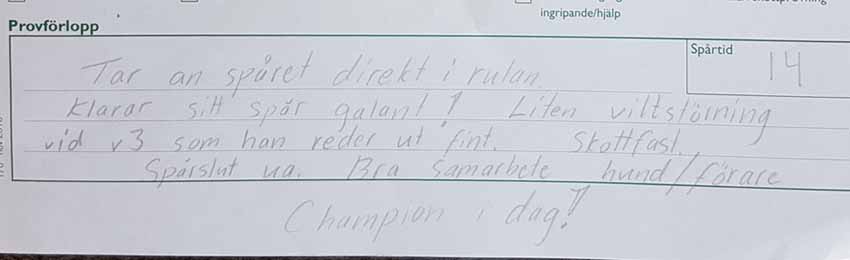 ingripande/hjälp
Provförlopp
Spårtid
14
Tar an spåret direkt i rulan.
Klarar sitt spår galant! Liten viltstörning
vid v3 som han reder ut fint. Skottfast.
Spårslut ua. Bra samarbete hund/förare
Champion i dag!